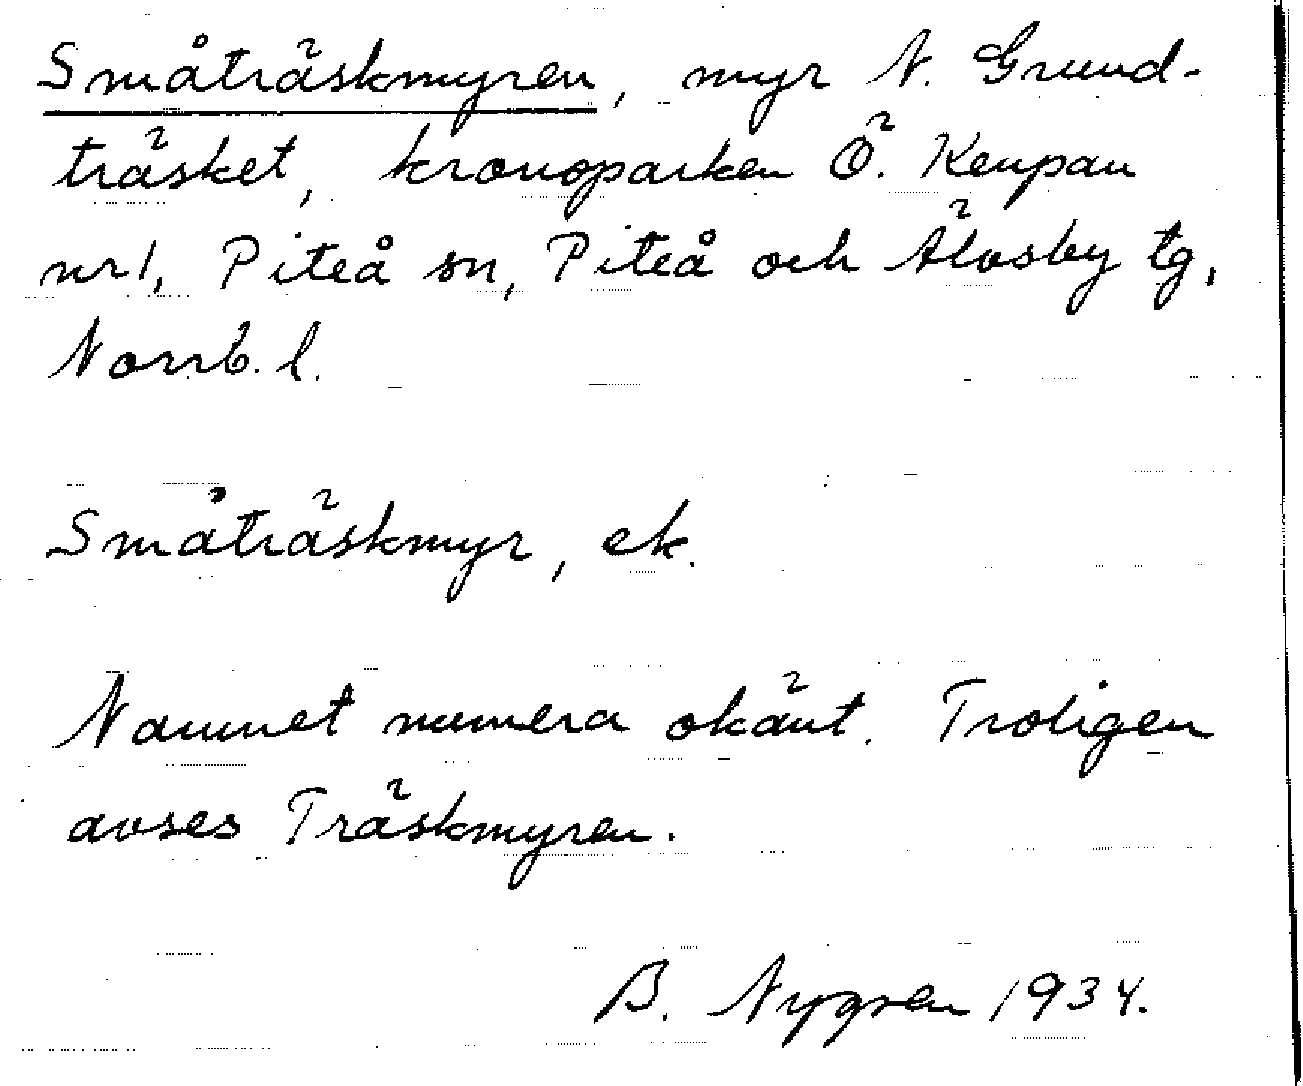 Småträskmyren, myr N. Grund-
träsket, kronoparken Ö. Kenpan
nr 1, Piteå sn, Piteå och Älvsby tg,
Norrb. l.
Småträskmyr, ek.
Namnet numera okänt. Troligen
avses Träskmyren.
B. Nygren 1934.